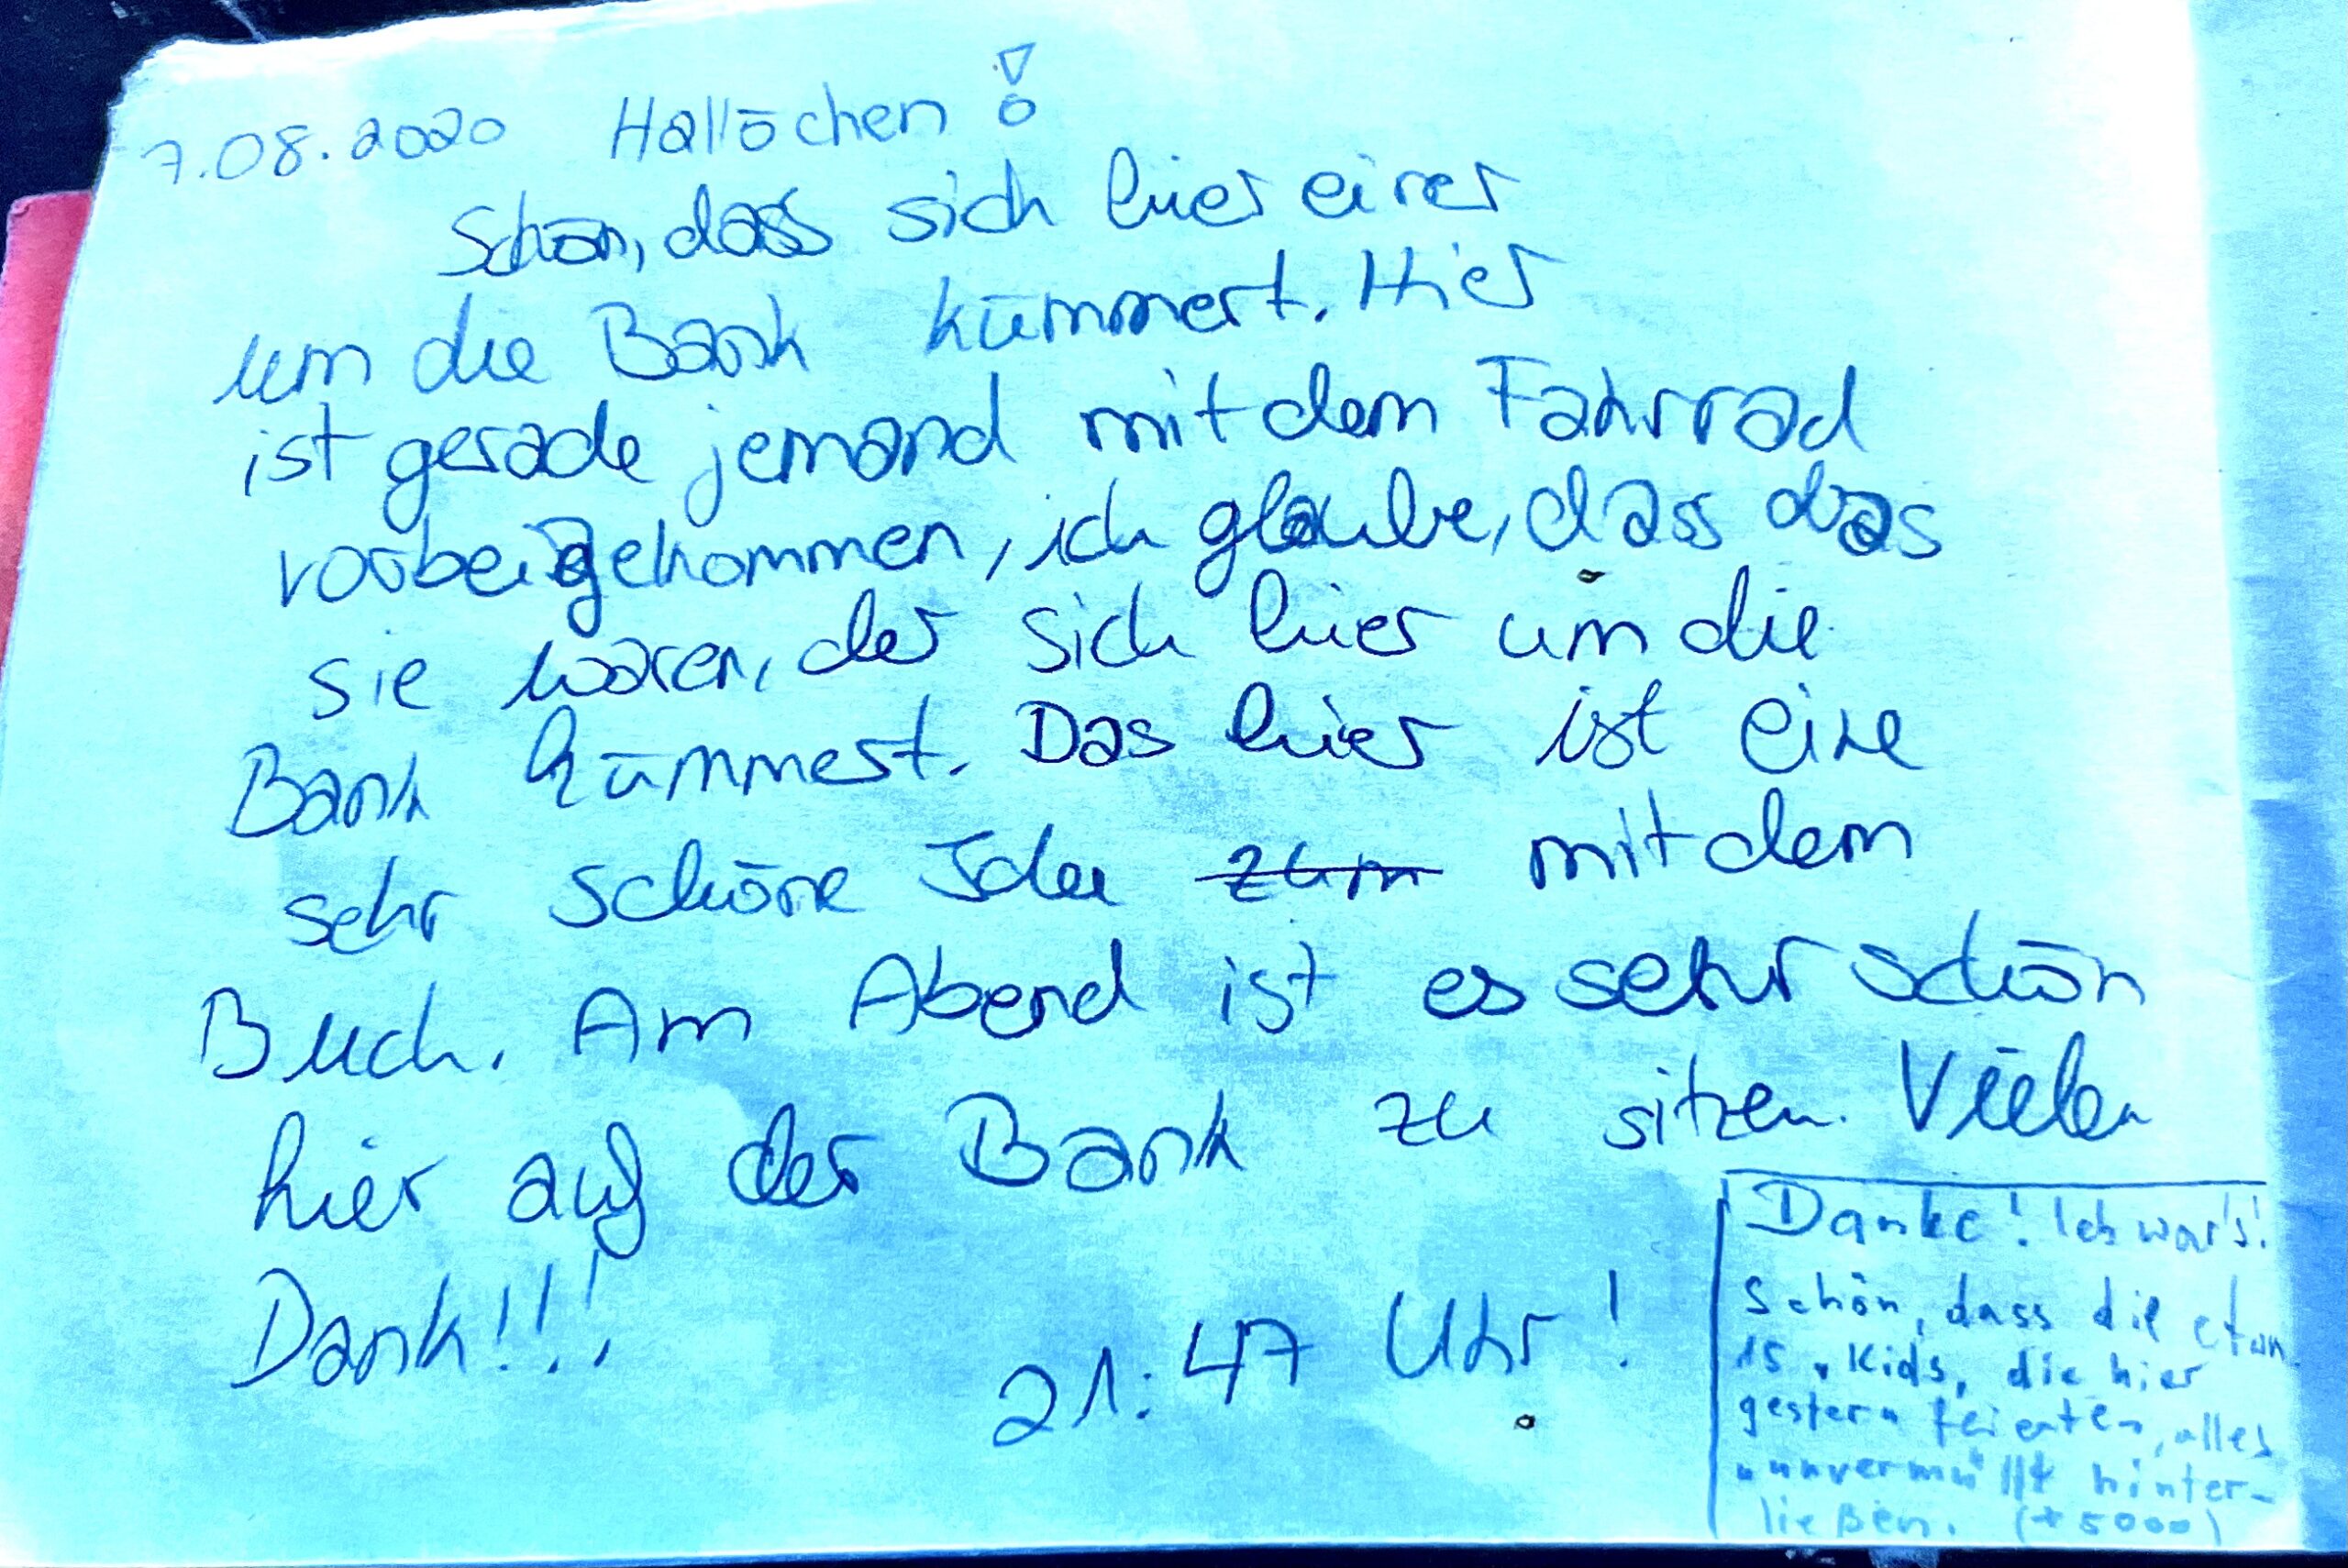 7.08.2020 Hallöchen!
Schön, dass sich hier einer
um die Bank kümmert. Hier
ist gerade jemand mit dem Fahrrad
vorbeigekommen, ich glaube, dass das
sie waren, der sich hier um die
Bank kümmert. Das hier ist eine
sehr schöne Idee zum mit dem
Buch. Am Abend ist es sehr schön
hier auf der Bank zu sitzen. Vielen
Dank!!!
21:47 Uhr!
Danke! Ich war's!
Schön, dass die etwa
15 "Kids, die hier
gestern feierten, alles
"unvermüllt" hinter-
ließen. (+5000)